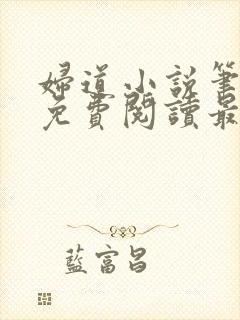 婦道小說筆
免費閱讀最
藍富昌